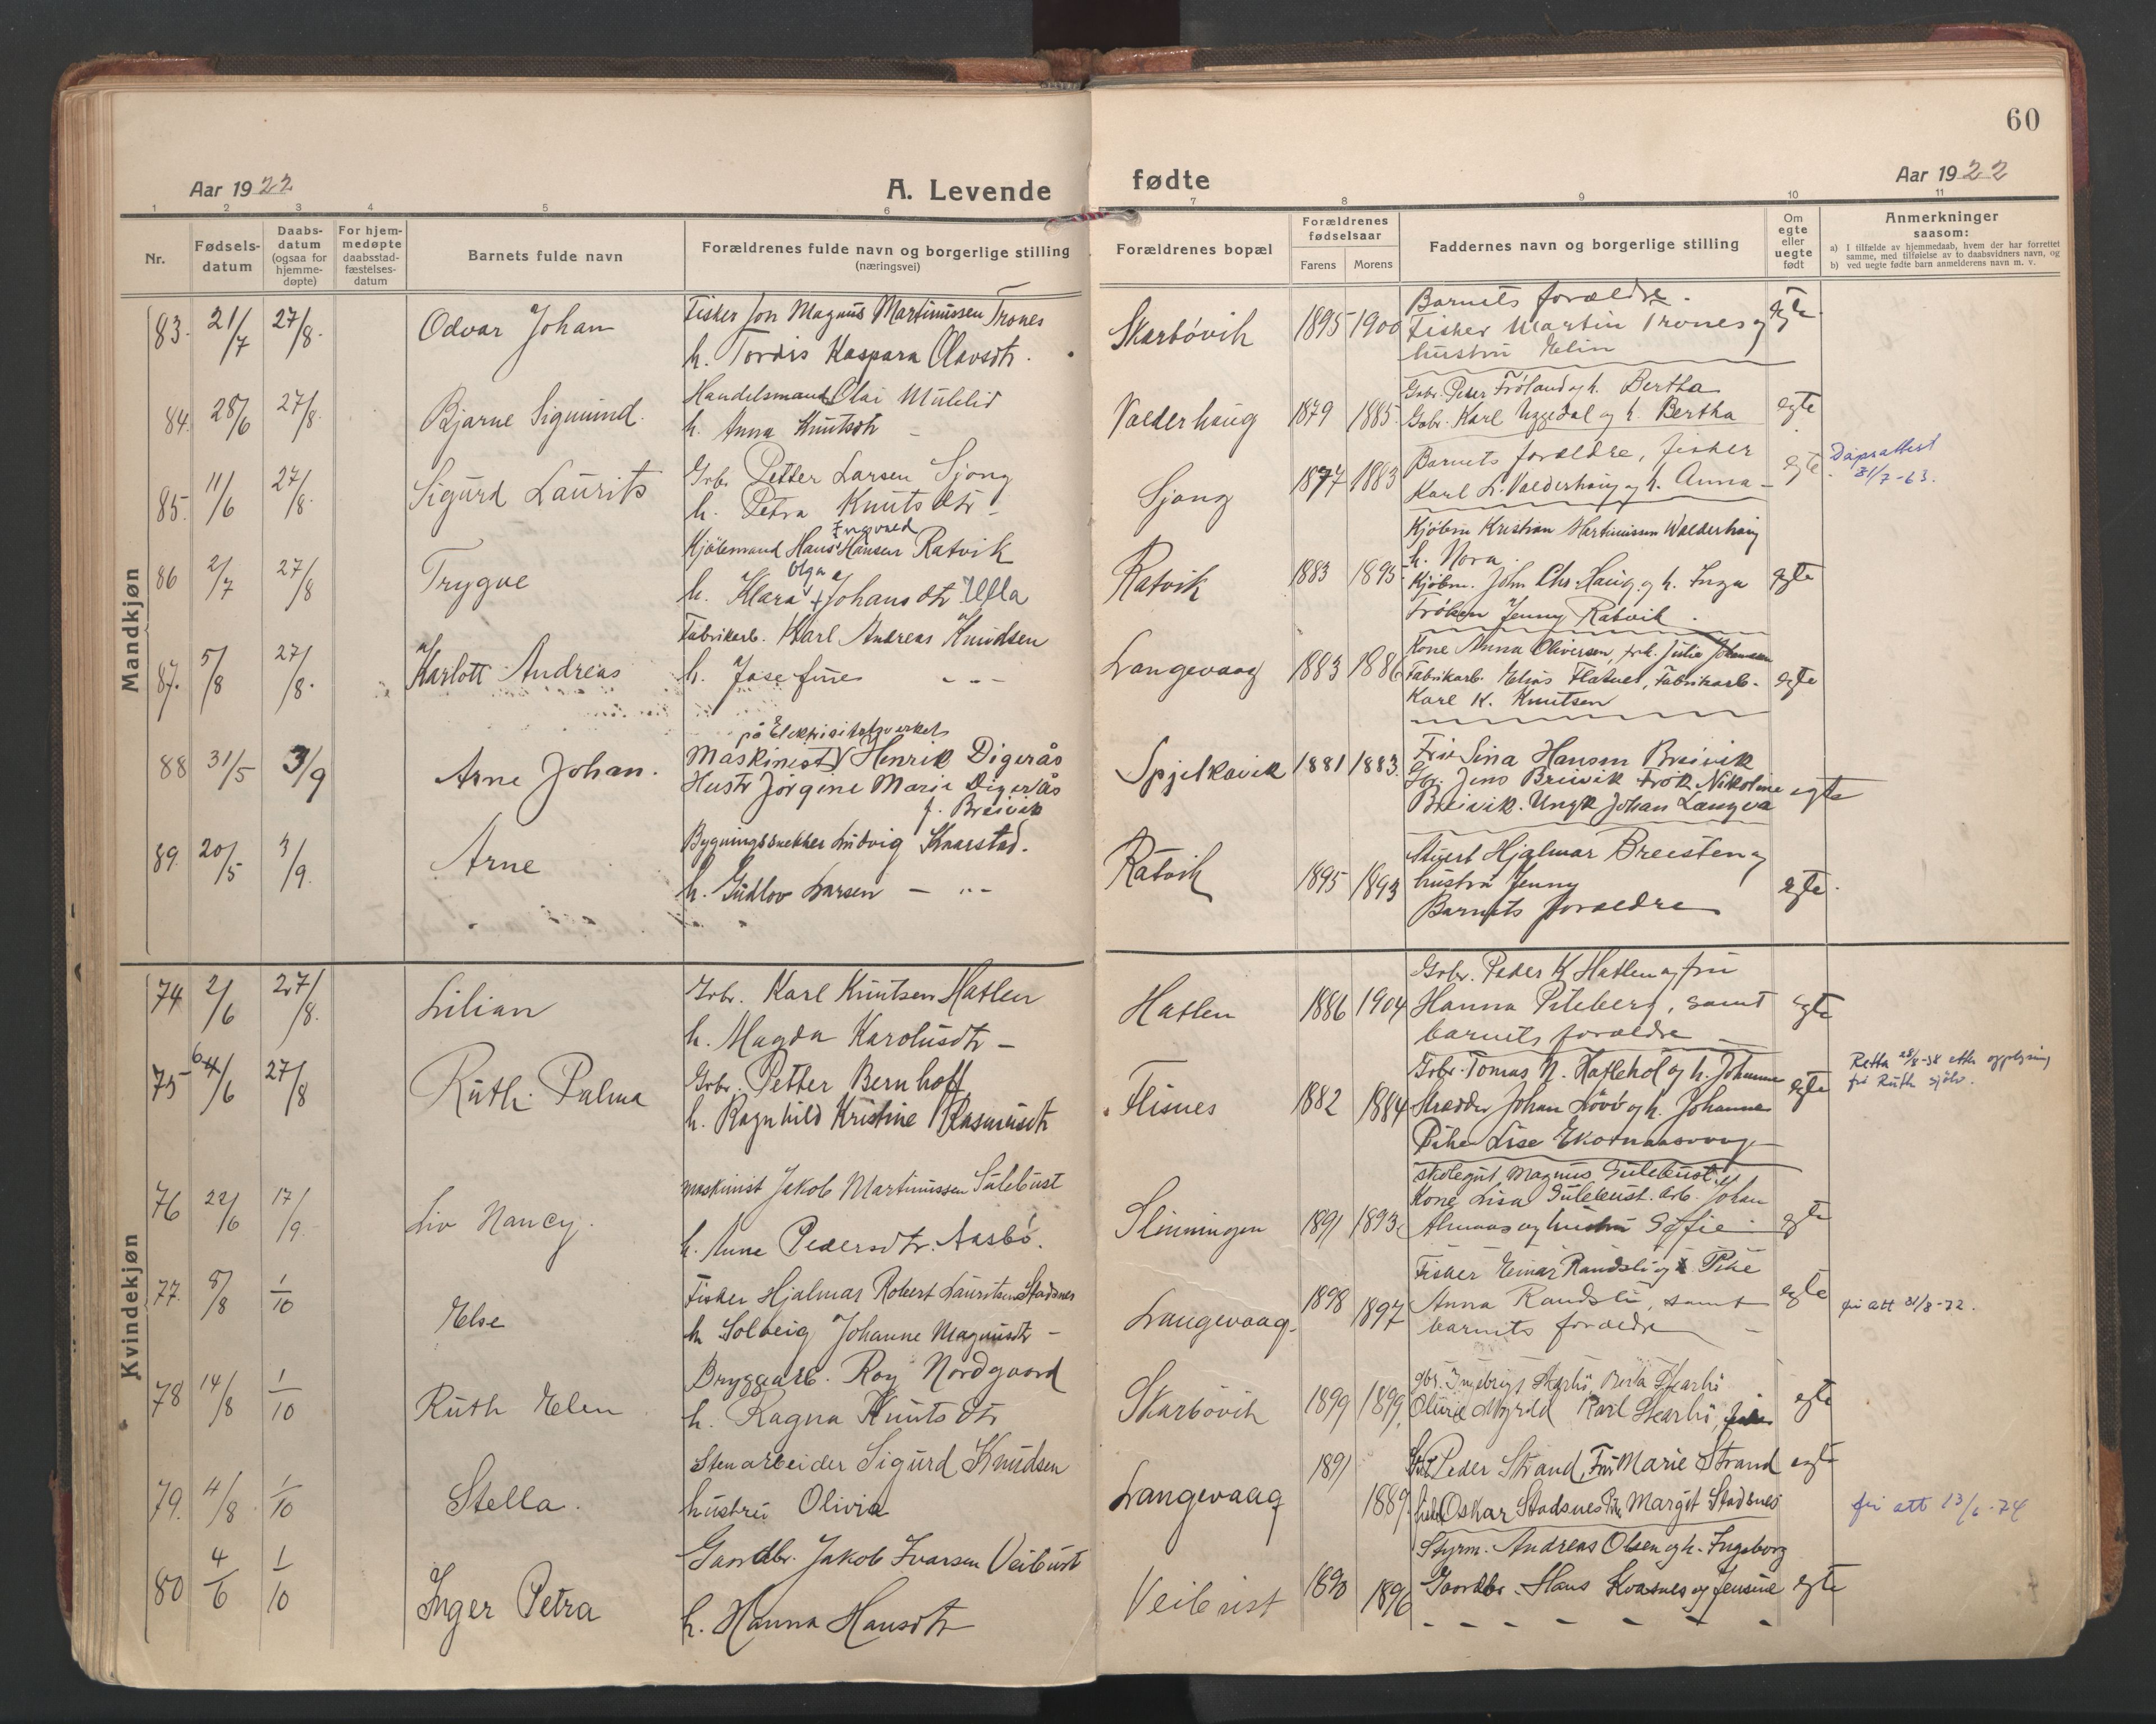 60
Aar 1922
A. Levende fødte
Aar 1922
1 2 3 4 5 6 7 8 9 10 11
Nr.
Fødsels-
datum
Daabs-
datum
(ogsaa for
hjemme-
døpte)
For hjem-
medøpte
daabsstad-
fæstelses-
datum
Barnets fulde navn
Forældrenes fulde navn og borgerlige stilling
(næringsvei)
Forældrenes bopæl
Forældrenes
fødselsaar
Farens Morens
Faddernes navn og borgerlige stilling
Om
egte
eller
uegte
født
Anmerkninger
saasom:
a) I tilfælde av hjemmedaab, hvem der har forrettet
samme, med tilføielse av to daabsvidners navn, og
b) ved uegte fødte barn anmelderens navn m. v.
Mandkjøn
83. 21/7 27/8. Odvar Johan
Fisker Jon Magnus Martinussen Trones
h. Tordis Kaspara Olavsdtr.
Skarbövik 1895 1900
Barnets forældre.
Fisker Martin Trones og
hustru Elin
egte
84. 28/6 27/8. Bjarne Sigmund.
Handelsmand Olai Mulelid
h. Anna Knutsdtr —
Valderhaug 1879 1885.
Gbr. Peder Fröland og h. Bertha
Gobr. Karl Uggedal og h. Bertha
egte
85. 11/6 27/8. Sigurd Laurits
Grbr. Petter Larsen Sjong
h. Petra Knutsdtr —
Sjong 1877 1883
Barnets forældre, fisker
Karl L. Valderhaug og h. Anna —
egte
Dåpsattest
31/7-63.
86 2/7 27/8 Trygve
Ingvald
Kjöbmand Hans Hansen Ratvik
Olga
h. Klara Johansdtr Ulla
Ratvik 1883 1895
Kjöbm Kristian Martinussen Walderhaug
h. Nora.
Kjöbm. John Chr. Haug og h. Inga
Fröken Jenny Ratvik.
egte
87. 5/8 27/8. Karlott Andreas
Fabrikarb. Karl Andreas Knudsen
h. Josefine — " —
Langevaag 1883 1886
Kone Anna Oliversen, frk. Julie Johansen
Fabrikarb. Elias Flatnes, Fabrikarb.
Karl K. Knutsen
egte
88 31/5 3/9 Arne Johan.
på Elektrisitetsverket
Maskinest V Henrik Digerås
Hustr Jörgine Marie Digerås
f. Breivik
Spjelkavik 1881 1883.
Fru Sina Hansen Breivik
Gr. Jens Breivik frök. Nikoline
Breivik. Ungk Johan Langva
egte
89. 20/5 3/9. Arne
Bygningssnekker Ludvig Knarstad.
h. Gudlov Larsen — " —
Ratvik 1895 1893
Stuert Hjalmar Breisten og
hustru Jenny
Barnets forældre
egte
Kvindekjøn
74 2/6 27/8. Lilian
Grbr. Karl Knutsen Hatlen
h. Magda Karolusdtr —
Hatlen 1886 1904
Gobr. Peder K. Hatlen og fru
Hanna Pileberg, samt
barnets forældre —
egte
75 6 4/6 27/8 Ruth Palma
Grbr. Petter Bernhoff
h. Ragnhild Kristine Rasmusdtr
Flisnes 1882 1884
Grbr. Tomas N. Hatlehol og h. Johanne
Skrædder Johan Lövö og h. Johanne
Pike Lise Ekornaasvaag —
egte
Retta 28/8-38 etter opplysning
frå Ruth sjölv.
76 22/6 17/9 Liv Nancy.
maskinist Jakob Martinussen Sulebust
h. Anne Pedersdtr. Aasbö.
Slinningen 1891 1893.
skolegut Magnus Sulebust.
Kone Lisa Sulebust. arb. Johan
Almaas og hustru Sofie.
egte
77. 5/8 1/10 Else
Fisker Hjalmar Robert Lauritsen Stadsnes
h. Solveig Johanne Magnusdtr —
Langevaag. 1898 1897
Fisker Einar Randsli og Pike
Anna Randsli, samt
barnets forældre —
egte
fri att 31/8-72.
78 14/8 1/10 Ruth Elen
Bryggearb. Roy Nordgaard
h. Ragna Knutsdtr
Skarbövik 1899 1899
gbr. Ingebrigt Skarbö, Berta Skarbö
Karl Skarbö
egte
79. 4/8. 1/10 Stella.
Stenarbeider Sigurd Knudsen
hustru Olivia
Langevaag 1891 1889.
Peder Strand, Fru Marie Strand
Oskar Stadsnes Pike Margit Stadsnes
egte
fri att 13/6-74
80 4/6 1/10 Inger Petra
Gaardbr. Jakob Ivarsen Veibust
h. Hanna Hansdtr
Veibust 1890 1896
Styrm. Andreas Olsen og h. Ingeborg
Gaardbr. Hans Kvasnes og Jensine
— — — — — — —
egte